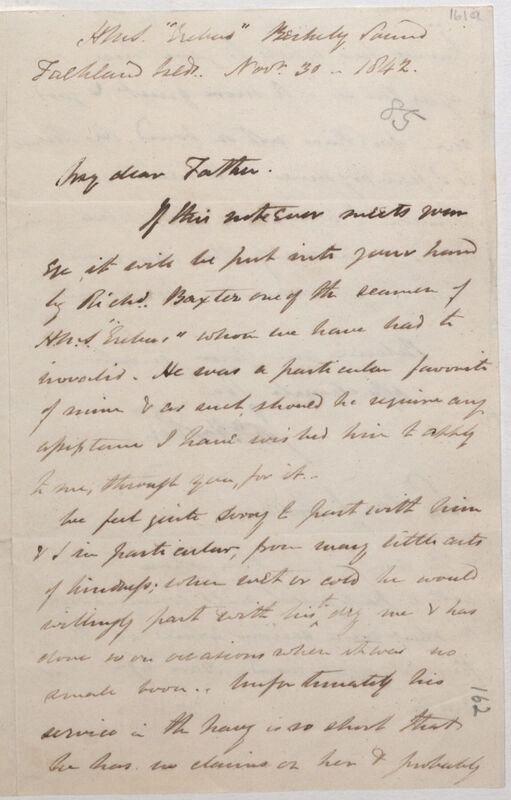 161a
H.M.S. "Erebus" Berkely Sound
Falkland Islds. Novr. 30 - 1842.
85
My dear Father.
If this note ever meets your
Eye, it will be put into your hand
by Richd. Baxter one of the seamen of
H.M.S. "Erebus" whom we have had to
invalid. He was a particular favourite
of mine & as such, should he require any
assistance I have wished him to apply
to me, through you, for it..
We feel quite sorry to part with him
& I in particular, from many little acts
of kindness; when wet or cold he would
willingly part with his dry & has
done so on occasions when it was no
small boon.. Unfortunately his
service in the navy is so short that
he has no claims on her & probably
162